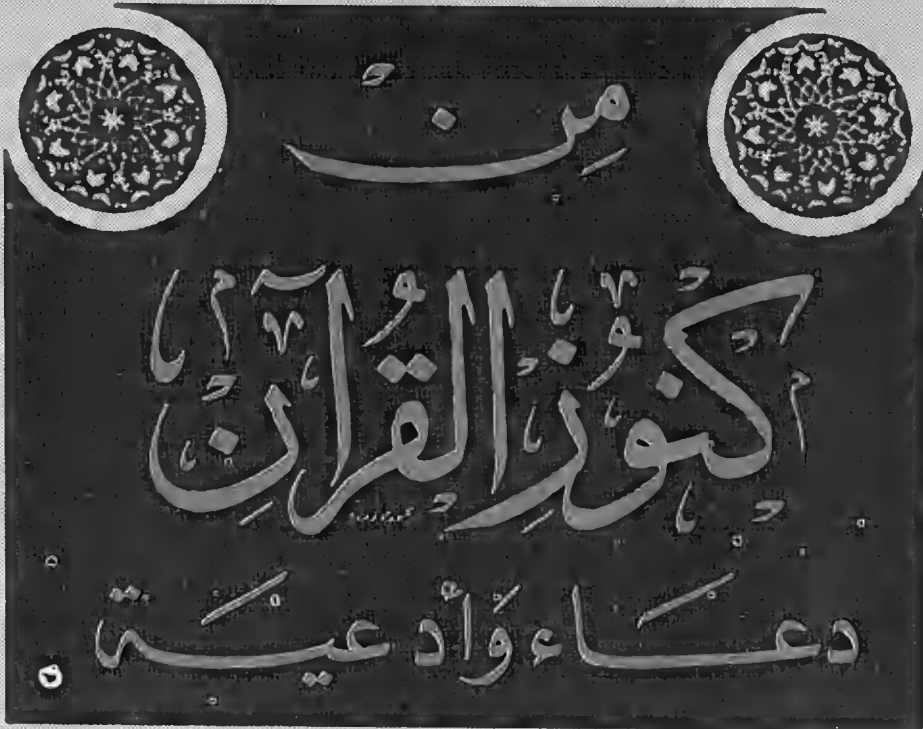 مِنْ
كُنُوزِ الْقُرْآنِ
دعَاء وَأدعيَة